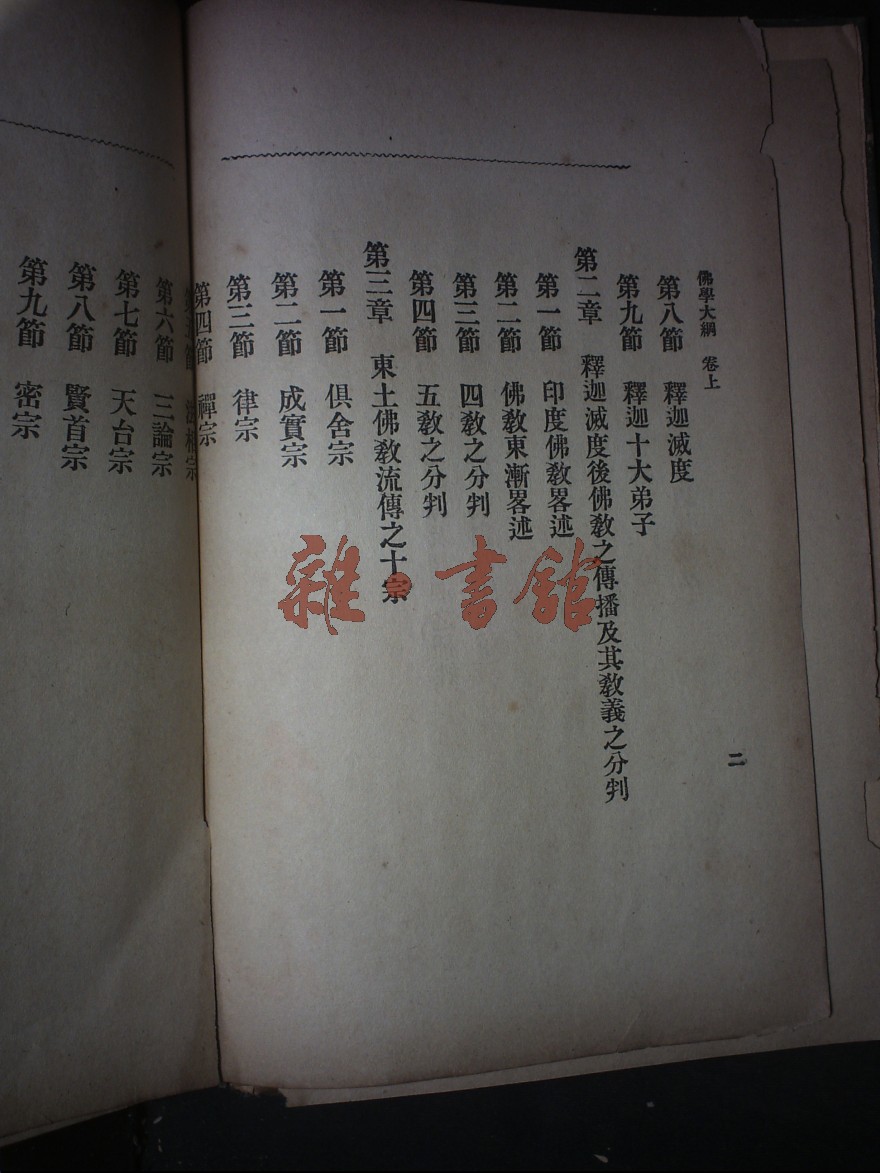 佛學大綱 卷上
二
第八節 釋迦滅度
第九節 釋迦十大弟子
第二章 釋迦滅度後佛敎之傳播及其敎義之分判
第一節 印度佛敎畧述
第二節 佛敎東漸畧述
第三節 四敎之分判
第四節 五敎之分判
第三章 東土佛敎流傳之十宗
第一節 俱舍宗
第二節 成實宗
第三節 律宗
第四節 禪宗
第五節 法相宗
第六節 三論宗
第七節 天台宗
第八節 賢首宗
第九節 密宗
雜·書館